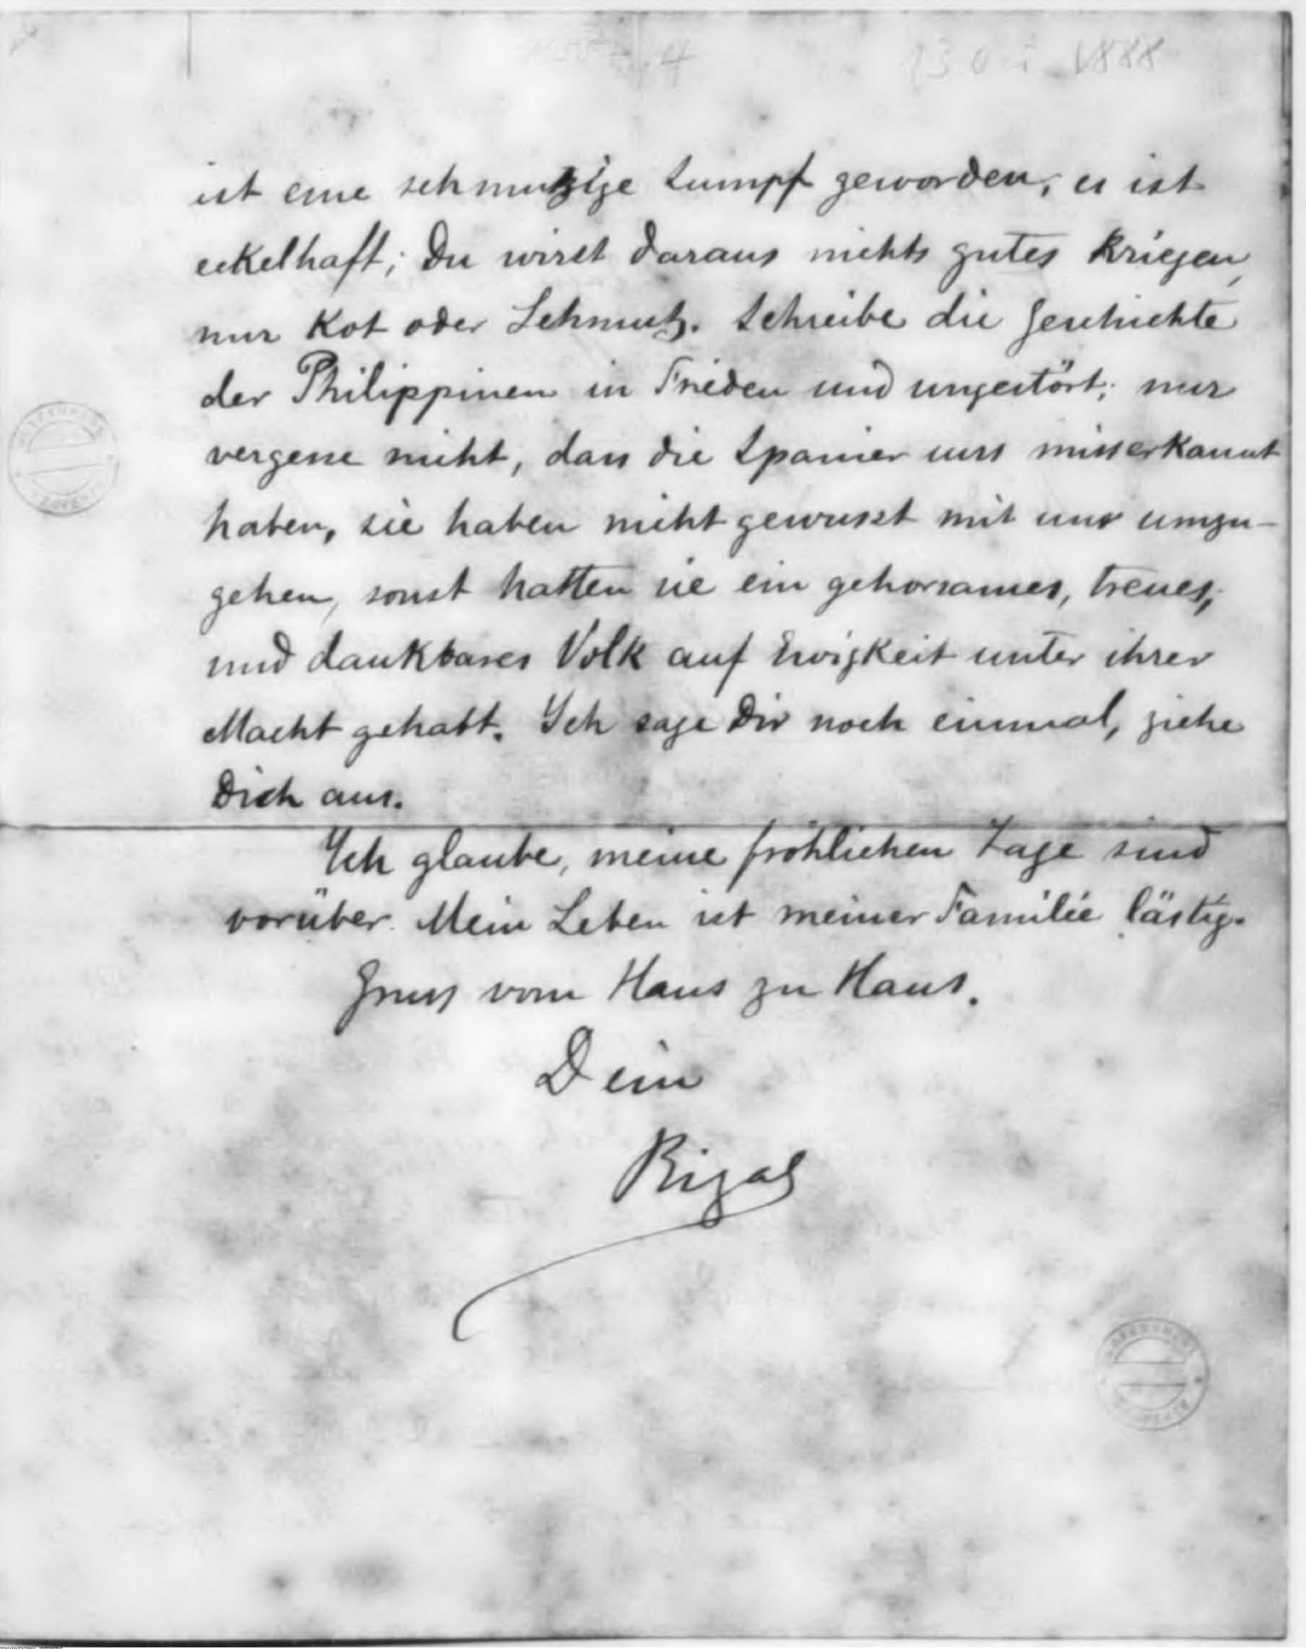 23 Oct 1888
ist eine schmutzige Sumpf geworden, es ist
eckelhaft; Du wirst daraus nichts gutes Kriegen,
nur Kot oder Schmutz. Schreibe die Geschichte
der Philippinen in Frieden und ungestört; nur
vergesse nicht, dass die Spanier uns misserkannt
haben, sie haben nicht gewusst mit uns umzu-
gehen, sonst hatten sie ein gehorsames, treues,
und dankbares Volk auf Ewigkeit unter ihrer
Macht gehabt. Ich sage Dir noch einmal, ziehe
Dich aus.
Ich glaube, meine fröhlichen Tage sind
vorüber. Mein Leben ist meiner Familie lästig.
Gruss vom Haus zu Haus.
Dein
Rizal